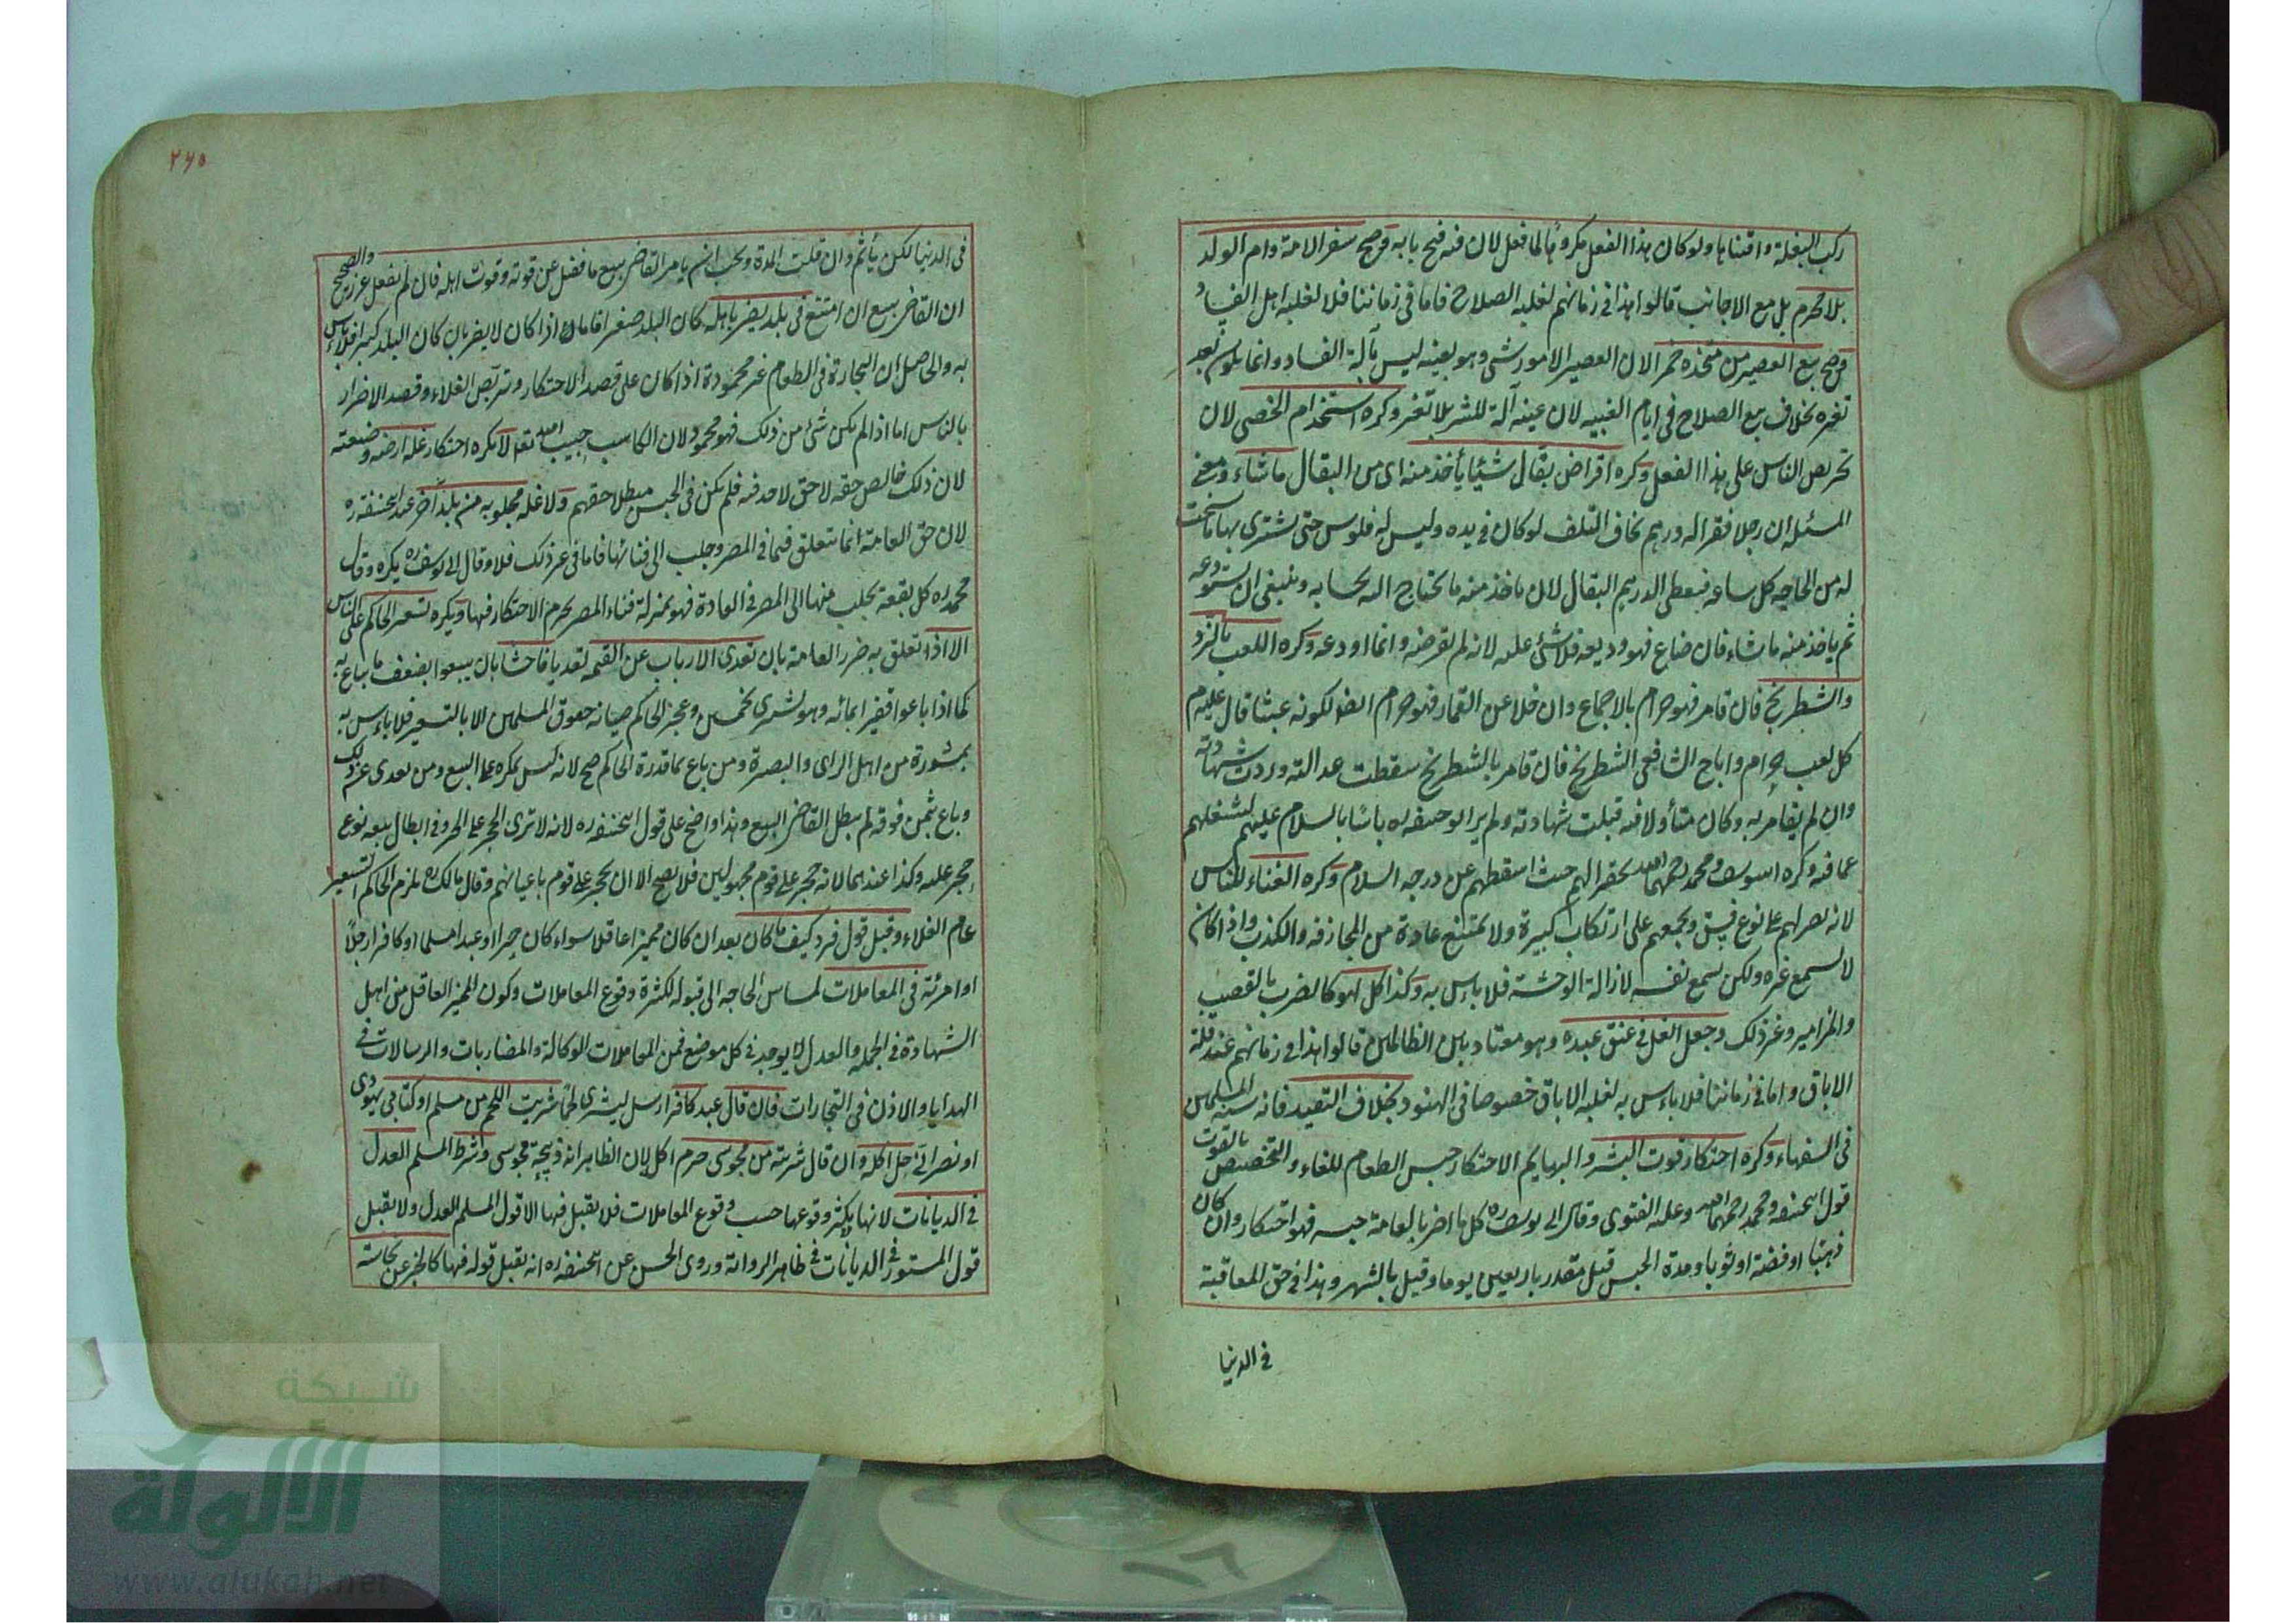 ركب البغلة واقتناها ولو كان هذا الفعل مكروها لما فعل لان فيه فتح بابه وصح سفر الامة وام الولد
بلا محرم بل مع الاجانب قالوا هذا في زمانهم لغلبة الصلاح فاما في زماننا فلا لغلبة اهل الفساد
وصح بيع العصير من متخذه خمرا لان العصير لامور شتى وهو بعينه ليس بآلة الفساد وانما يكون بعد
تغيره بخلاف بيع السلاح في ايام الفتنة لان عينه آلة للشر بلا تغير وكره استخدام الخصي لان
تحريص الناس على هذا الفعل وكره اقراض بقال شيئا يأخذ منه اى من البقال ما شاء ومعنى
المسئلة ان رجلا فقيرا له درهم يخاف التلف لو كان في يده وليس له فلوس حتى يشترى بها ما سنحت
له من الحاجة كل ساعة فيعطى الدرهم البقال لان ياخذ منه ما يحتاج اليه بحسابه وينبغى ان يستودعه
ثم ياخذ منه ما شاء فان ضاع فهو وديعة فلا شئ عليه لانه لم يقرضه وانما اودعه وكره اللعب بالنرد
والشطرنج فان قامر فهو حرام بالاجماع وان خلا عن القمار فهو حرام ايضا لكونه عبثا قال عليه م
كل لعب حرام واباح الشافعي الشطرنج فان قامر بالشطرنج سقطت عدالته وردت شهادته
وان لم يقامر به وكان متأولا فيه قبلت شهادته ولم ير ابو حنيفة ره باسا بالسلام عليهم لشغلهم
عما فيه وكره ابو يوسف ومحمد رحمهما الله تحقيرا لهم حيث اسقطهم عن درجة السلام وكره الغناء للناس
لانه نصر لهم على نوع فسق وبجمعهم على ارتكاب كبيرة ولا يمتنع عادة من المجازفة والكذب واذا كان
لا يسمع غيره ولكن يسمع نفسه لازالة الوحشة فلا باس به وكذا كل لهو كالضرب بالقصيب
والمزامير وغير ذلك وجعل الغل في عنق عبده وهو معتاد بين الظالمين قالوا هذا في زمانهم عند قلة
الاباق واما في زماننا فلا باس به لغلبة الاباق خصوصا في الهنود بخلاف التقييد فانه سنة المسلمين
في السفهاء وكره احتكار قوت البشر والبهايم الاحتكار حبس الطعام للغلاء والتخصيص بالقوت
قول ابى حنيفة ومحمد رحمهما الله وعليه الفتوى وقال ابى يوسف ره كل ما اضر بالعامة حبسه فهو احتكار وان كان
ذهبا او فضة او ثوبا ومدة الحبس قيل مقدر باربعين يوما وقيل بالشهر وهذا في حق المعاقبة
في الدنيا
٢٦٥
في الدنيا لكن يأثم وان قلت المدة ويجب ان يامر القاضي ببيع ما فضل عن قوته وقوت اهله فان لم يفعل عزر والصحيح
ان القاضي يبيع ان امتنع في بلد يضر باهله كان البلد صغيرا فاما اذا كان لا يضر بان كان البلد كبيرا فلا باس
به والحاصل ان التجارة في الطعام غير محمودة اذا كان على قصد الاحتكار وتربص الغلاء وقصد الاضرار
بالناس اما اذا لم يكن شئ من ذلك فهو محمود لان الكاسب حبيب الله تعالى لا يكره احتكار غلة ارضه وضيعته
لان ذلك خالص حقه لا حق لاحد فيه فلم يكن في الحبس مبطلا حقهم ولا غلة مجلوبة من بلد آخر عند ابى حنيفة ره
لان حق العامة انما يتعلق فيما في المصر وجلب الى فنائها فاما في غير ذلك فلا وقال ابى يوسف ره يكره وقال
محمد ره كل بقعة يجلب منها الى المصر في العادة فهو بمنزلة فناء المصر يحرم الاحتكار فيها ويكره تسعير الحاكم على الناس
الا اذا تعلق به ضرر العامة بان تعدى الارباب عن القيمة تعديا فاحشا بان يبيعوا بضعف ما يباع به
كما اذا باعوا قفيزا بمائة وهو يشترى بخمسين وعجز الحاكم صيانة حقوق المسلمين الا بالتسعير فلا باس به
بمشورة من اهل الراى والبصيرة ومن باع بما قدره الحاكم صح لانه ليس بمكره على البيع ومن تعدى عن ذلك
وباع بثمن فوقه لم يبطل القاضي البيع وهذا واضح على قول ابى حنيفة ره لانه لا ترى الحجر على الحر وفي ابطال بيعه نوع
حجر عليه وكذا عندهما لانه حجر على قوم مجهولين فلا يصح الا ان يحجر على قوم باعيانهم وقال مالك ره يلزم الحاكم التسعير
عام الغلاء وقبل قول فرد كيف ما كان بعد ان كان مميزا عاقلا سواء كان حرا او عبدا مسلما او كافرا رجلا
او امرئة في المعاملات لمساس الحاجة الى قبوله لكثرة وقوع المعاملات وكون المميز العاقل من اهل
الشهادة في الجملة والعدل لا يوجد في كل موضع فمن المعاملات الوكالة والمضاربات والرسالات في
الهدايا والاذن في التجارات فان قال عبد كافر ارسل ليشترى لحما شريت اللحم من مسلم او كتابي يهودى
او نصراني حل اكله وان قال شريته من مجوسى حرم اكل لان الظاهر انه ذبيحة مجوسى وشرط المسلم العدل
في الديانات لانها لا يكثر وقوعها حسب وقوع المعاملات فلا يقبل فيها الا قول المسلم العدل ولا يقبل
قول المستور في الديانات في ظاهر الرواية وروى الحسن عن ابى حنيفة ره انه يقبل قوله فيها كالخبر عن نجاسة
شبكة
الألوكة
www.alukah.net